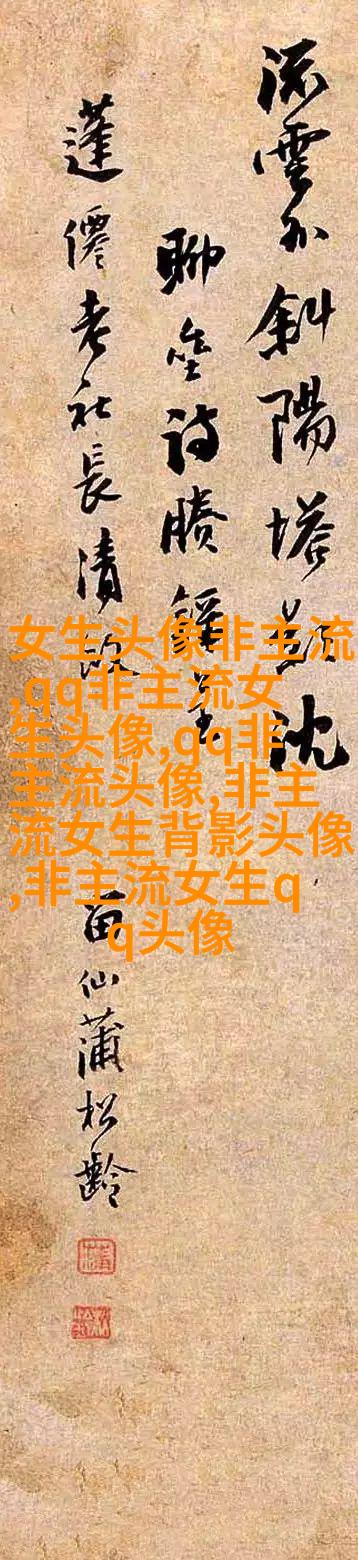 流雲外斜陽塔影沈
聊登詩
蓬僊老社長清
留仙蒲松齡
女生头像非主流
,qq非主流女
生头像,qq非
主流头像,非主
流女生背影头像
,非主流女生q
q头像